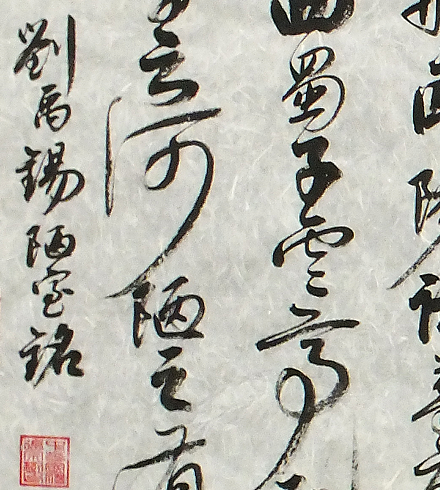 南陽諸葛
西蜀子雲亭
云何陋之有
劉禹錫陋室銘